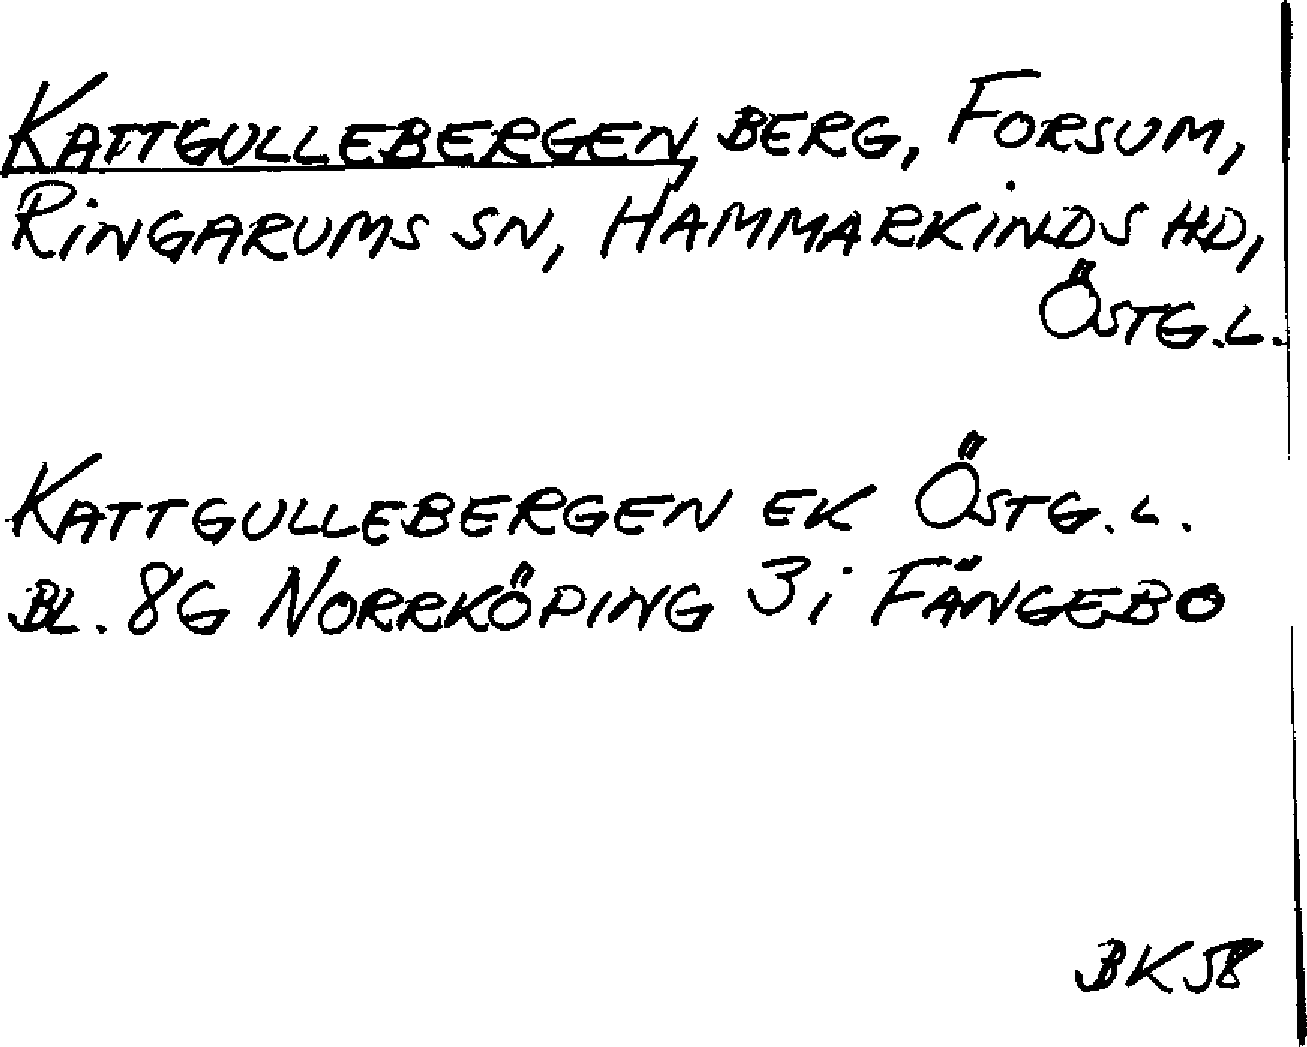 KATTGULLEBERGEN, BERG, FORSUM,
RINGARUMS SN, HAMMARKINDS HD,
ÖSTG.L.
KATTGULLEBERGEN EK ÖSTG.L.
BL. 8G NORRKÖPING 3i FÄNGEBO
BK 58